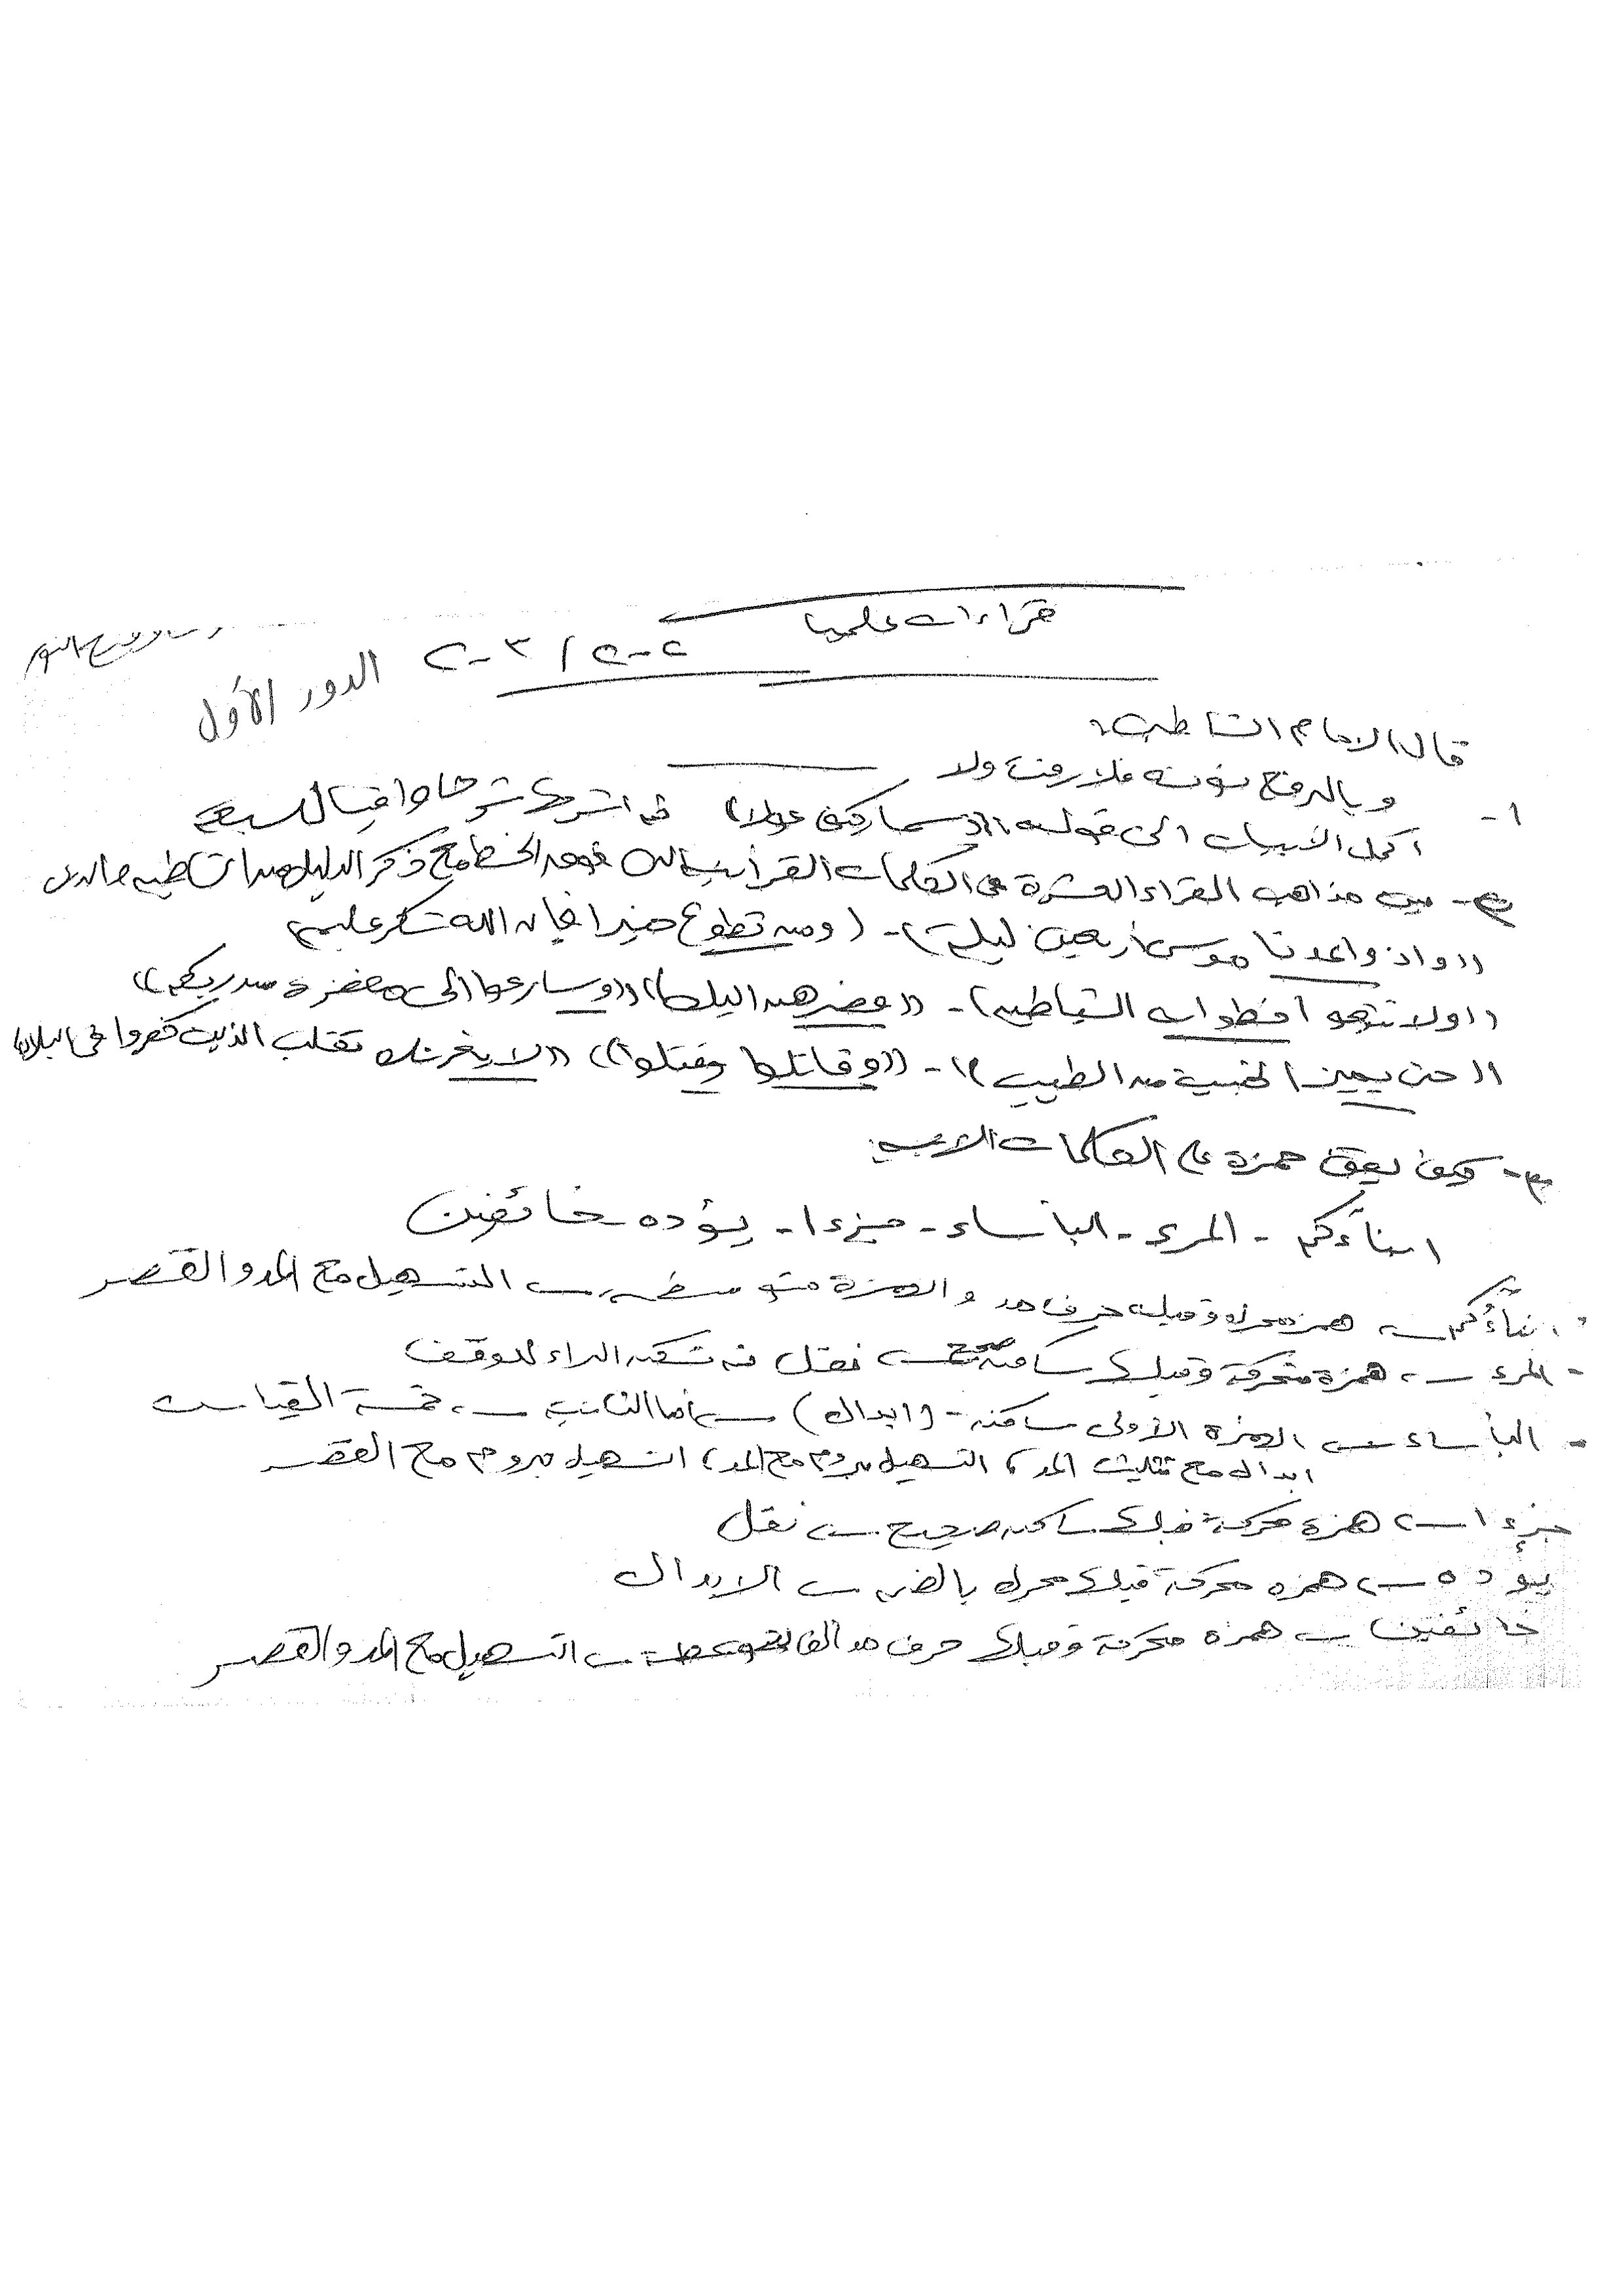 قراءات علميا
٢٠٠٣ / ٢٠٠٢ الدور الأول
قال الإمام الشاطبى
١- وبالرفع نونه فلا رفث ولا
أكمل الأبيات الى قوله ((سما كيف عولا)) ثم اشرح شرحا وافيا للسبعة
٢- بين مذاهب القراء العشرة فى الكلمات القرآنية التى فوق الخط مع ذكر الدليل من الشاطبية والدرة
((واذ واعدنا موسى أربعين ليلة)) - (ومن تطوع خيرا فإن الله شاكر عليم
((ولا تتبعوا خطوات الشيطان)) - ((فصرهن اليك)) ((وسارعوا الى مغفرة من ربكم))
((حتى يميز الخبيث من الطيب)) - ((وقاتلوا وقتلوا)) ((لا يغرنك تقلب الذين كفروا فى البلاد))
٣- كيف يقف حمزة على الكلمات الآتية:
ابناءكم - المرء - البأساء - جزءا - يؤده - خائفين
أبناءكم ← همز محرك وقبله حرف مد والهمزة متوسطة ← التسهيل مع المد والقصر
- المرء ← همزة متحركة وقبلها ساكن صحيح ← نقل ثم تسكن الراء للوقف
- البأساء ← الهمزة الأولى ساكنة - (ابدال) ← أما الثانية ← خمسة القياس
ابدال مع تثليث المد ، التسهيل بروم مع المد ، التسهيل بروم مع القصر
جزءا ← همزة محركة قبلها ساكن صحيح ← نقل
يؤده ← همزه محركة قبلها محرك بالضم ← الابدال
خائفين ← همزه محركة وقبلها حرف مد الف متوسطة ← التسهيل مع المد والقصر